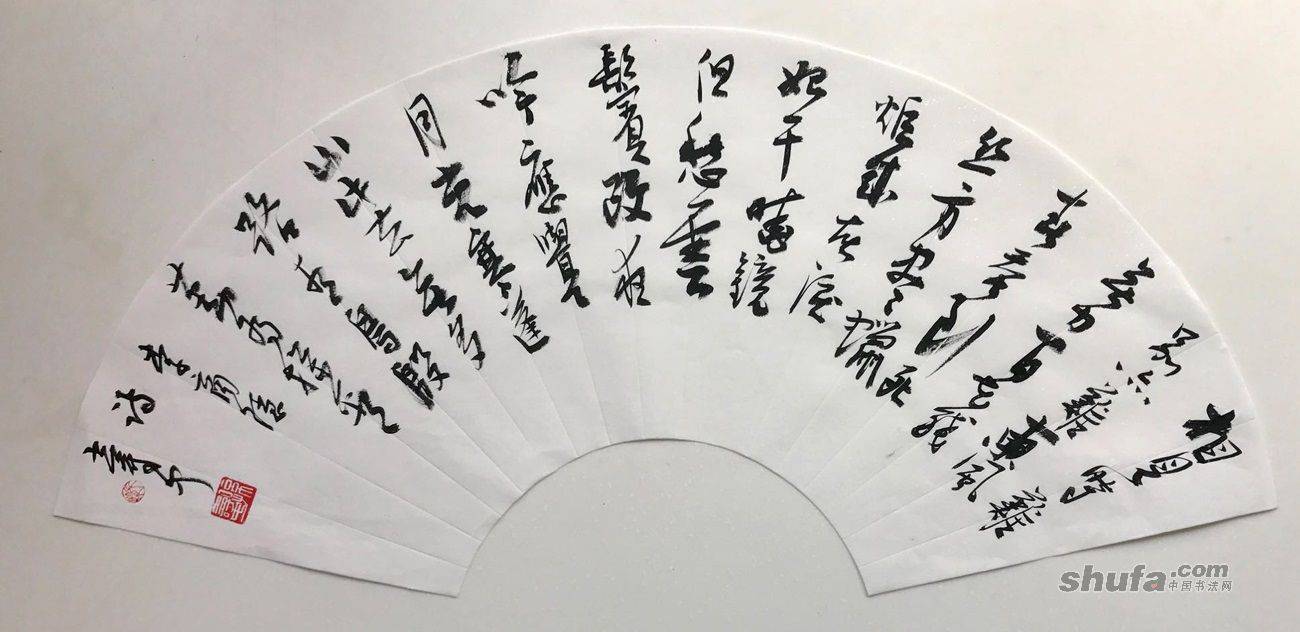 相見時難
別亦難東風
無力百花殘
春蠶到死
丝方盡蠟
炬成灰淚
始干曉鏡
但愁雲
鬢改夜
吟應覺
月光寒蓬
山此去無多
路青鳥殷
勤為探看
李商隱
詩
shufa.com
中国书法网